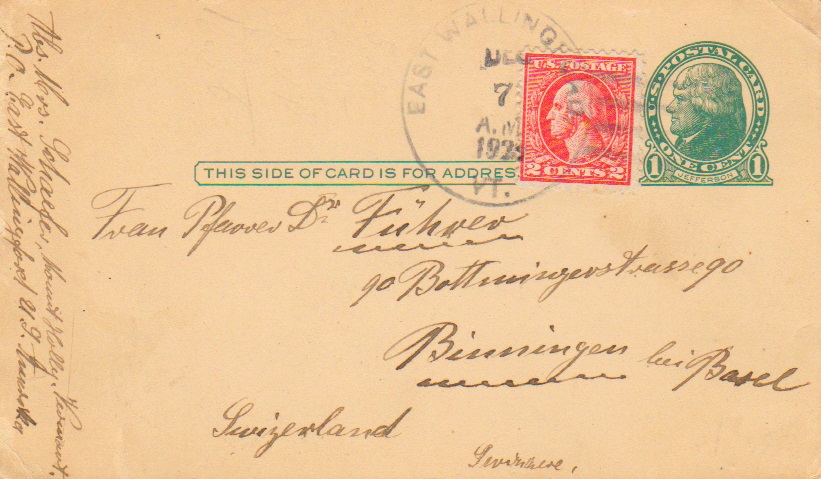 EAST WALLINGF
DEC
7
A.M.
VT.
U.S. POSTAGE
2 CENTS 2
U.S. POSTAL CARD
1 ONE CENT 1
JEFFERSON
THIS SIDE OF CARD IS FOR ADDRES
Frau Pfarrer Dr Führer
90 Bottmingerstrasse 90
Binningen bei Basel
Swizerland
Abs. Mrs. Schaefer, Mount Holly, Vermont.
P.O. East Wallingford U.S. Amerika